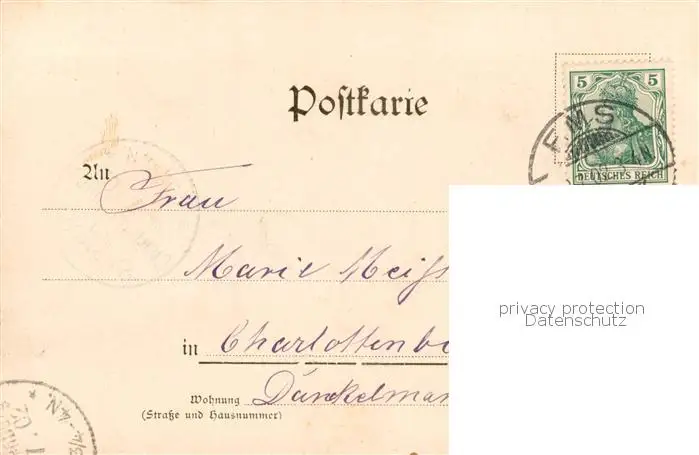 Postkarie
5 5
EMS
DEUTSCHES REICH
An Frau
Marie Meiß
privacy protection
Datenschutz
in Charlottenb
Wohnung
(Straße und Hausnummer)
Dankelman